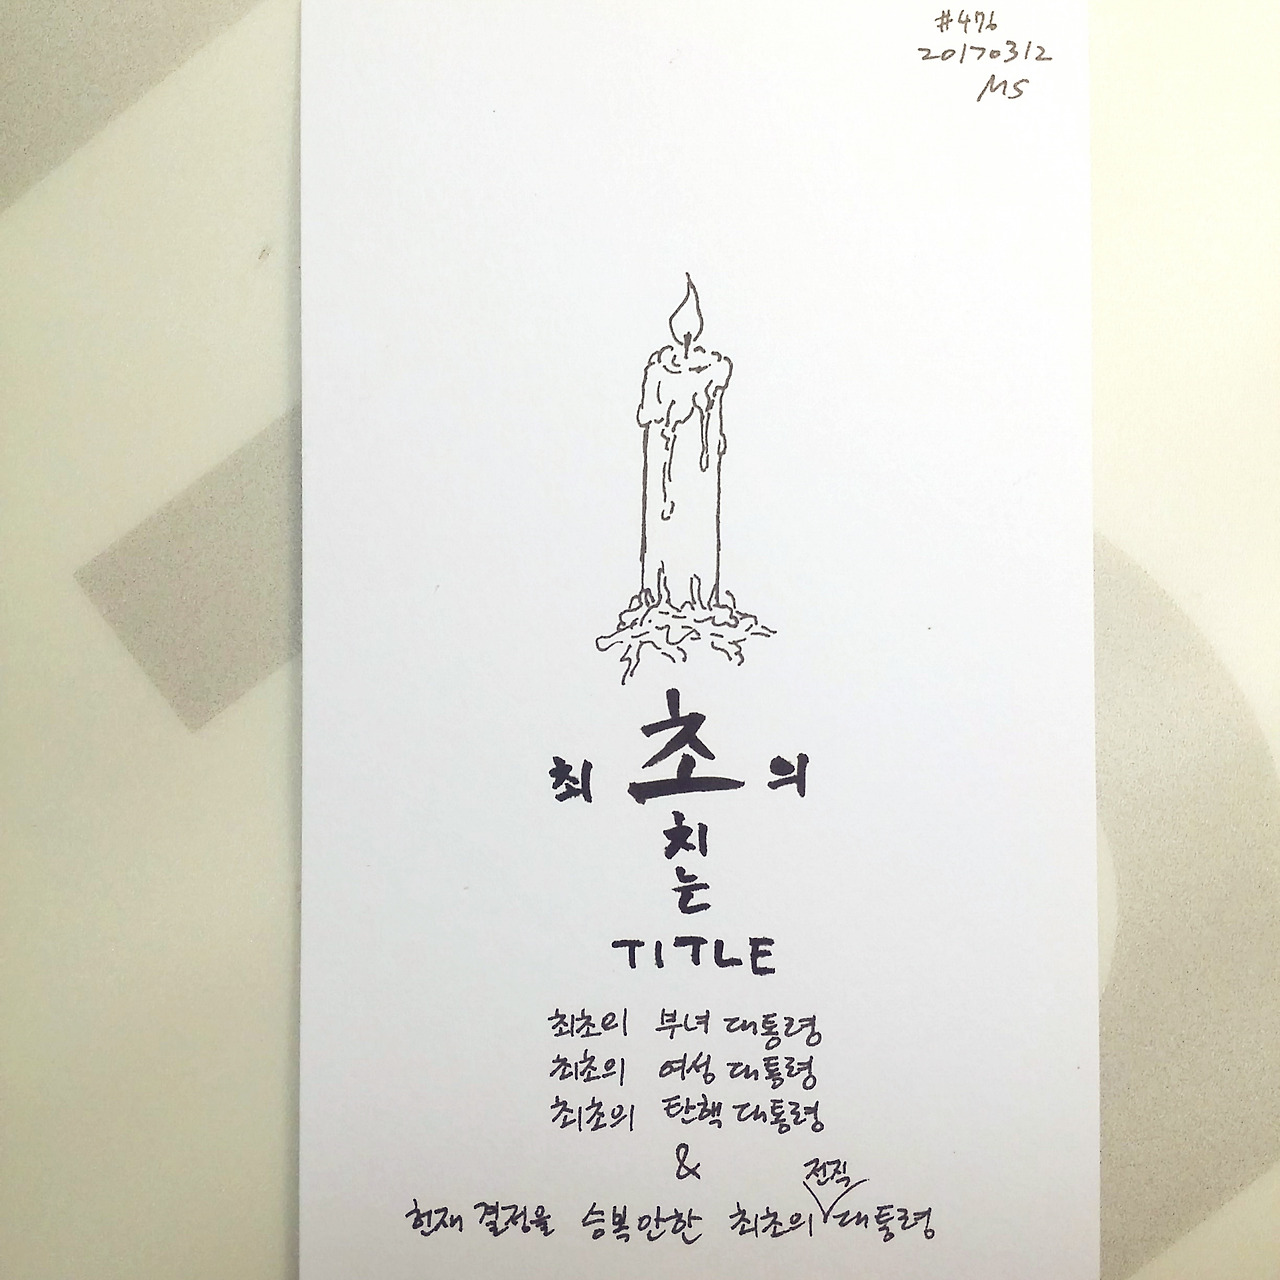 #476
20170312
MS
최초의
치
는
TITLE
최초의 부녀 대통령
최초의 여성 대통령
최초의 탄핵 대통령
&
전직
헌재 결정을 승복안한 최초의 대통령